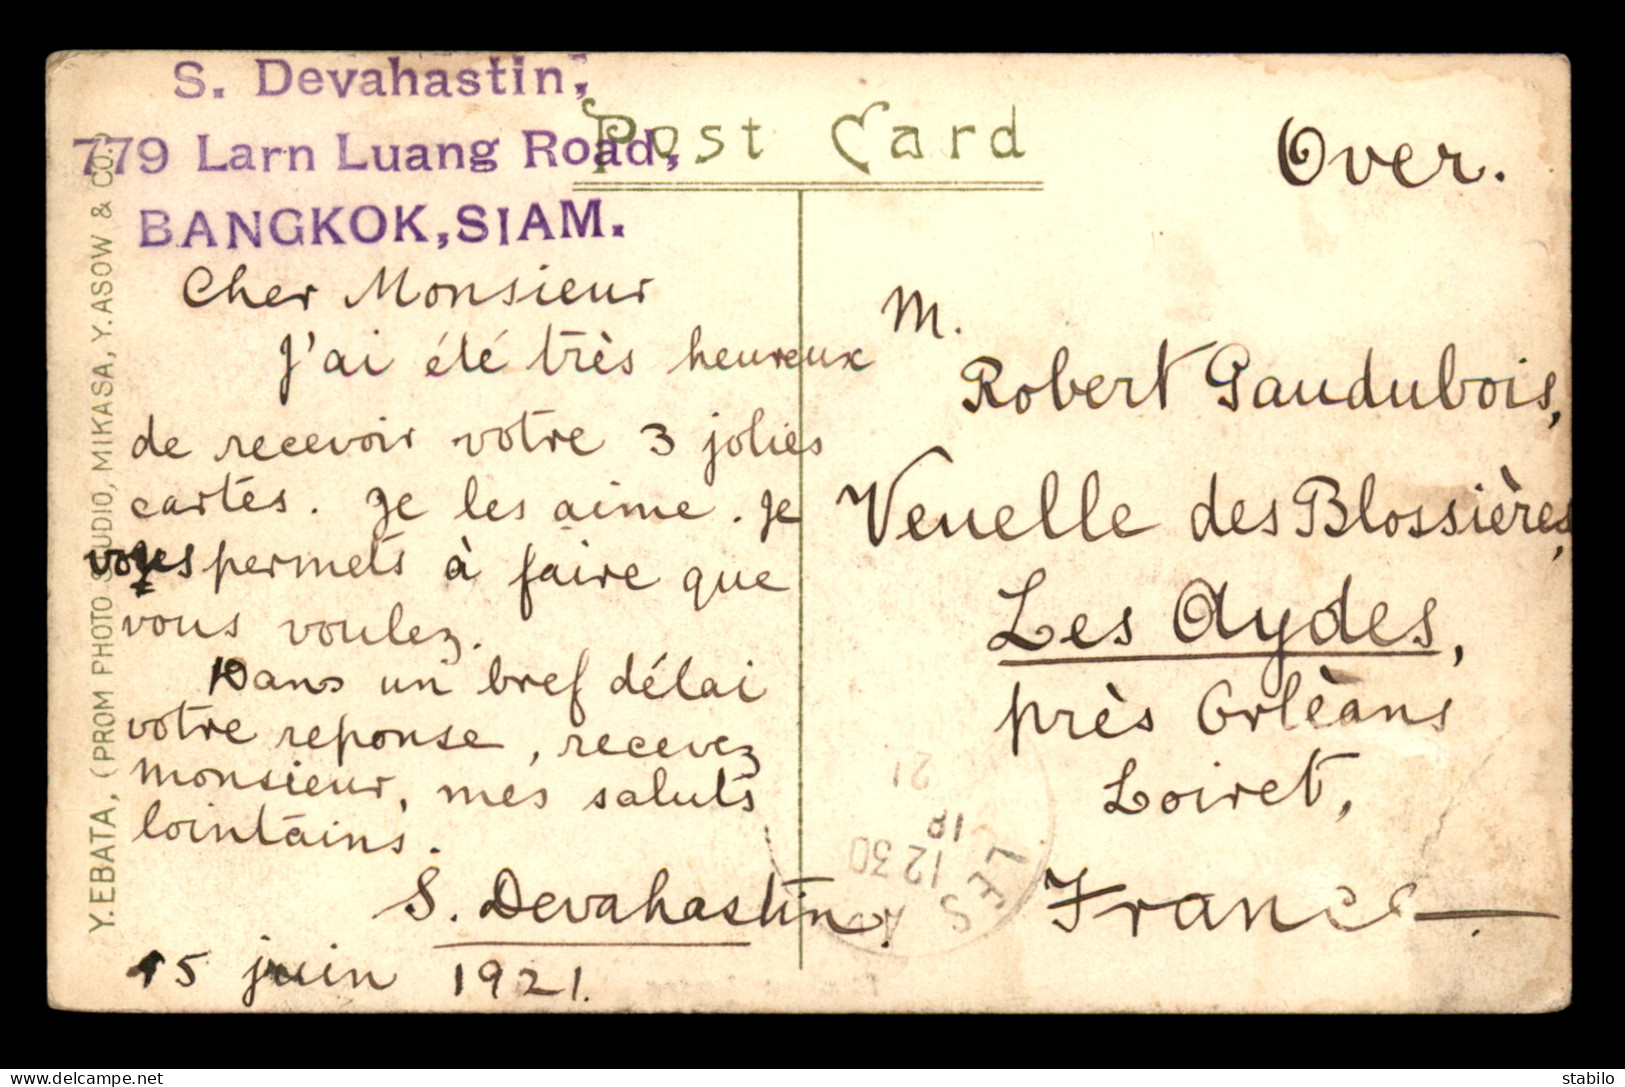 S. Devahastin,
779 Larn Luang Road,
BANGKOK, SIAM.
Post Card
Y. EBATA, (PROM PHOTO STUDIO, MIKASA, Y. ASOW & CO.)
Cher Monsieur
J'ai été très heureux
de recevoir votre 3 jolies
cartes. Je les aime. Je
vous permets à faire que
vous voulez.
Dans un bref délai
votre reponse, recevez
monsieur, mes saluts
lointains.
S. Devahastin.
15 juin 1921.
Over.
M.
Robert Gaudubois,
Venelle des Blossières,
Les Aydes,
près Orlèans
Loiret,
France.
LES A
12 30
18
21
stabilo